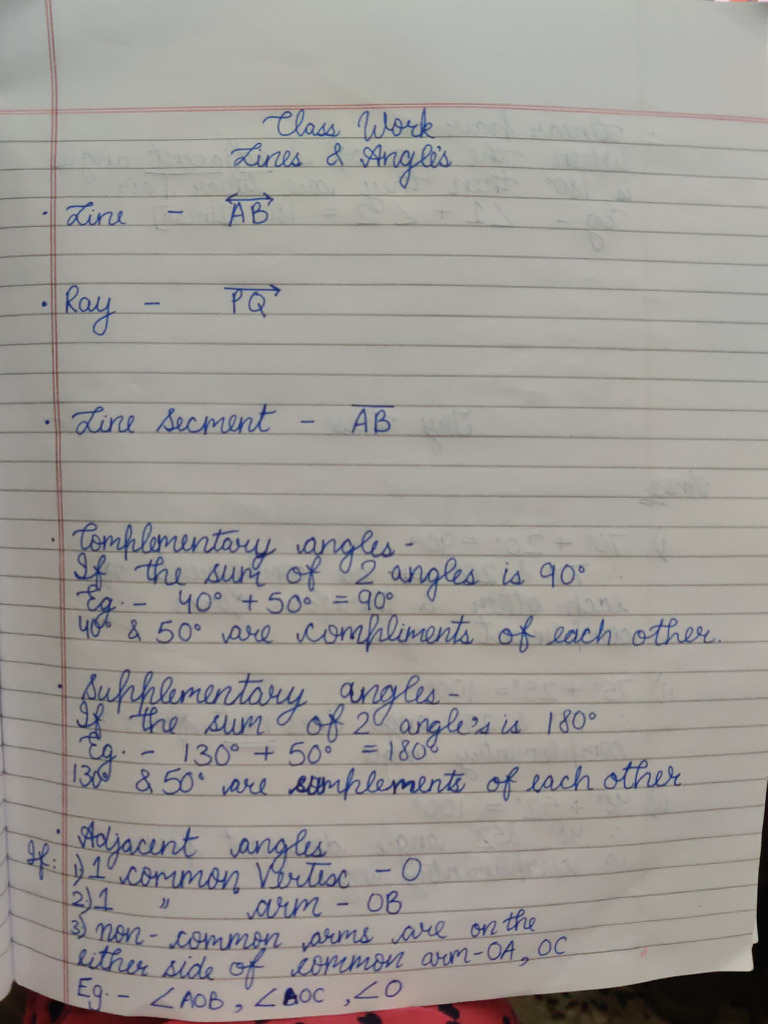 Class Work
Lines & Angle's
· Line - AB
· Ray - PQ
· Line Secment - AB
· Complementary angles -
If the sum of 2 angles is 90°
Eg. - 40° + 50° = 90°
40° & 50° are compliments of each other.
· Supplementary angles -
If the sum of 2 angle's is 180°
Eg. - 130° + 50° = 180°
130° & 50° are complements of each other
· Adjacent angles
If: 1) 1 common Vertex - O
2) 1 " arm - OB
3) non-common arms are on the
either side of common arm-OA, OC
Eg. - ∠AOB, ∠BOC, ∠O